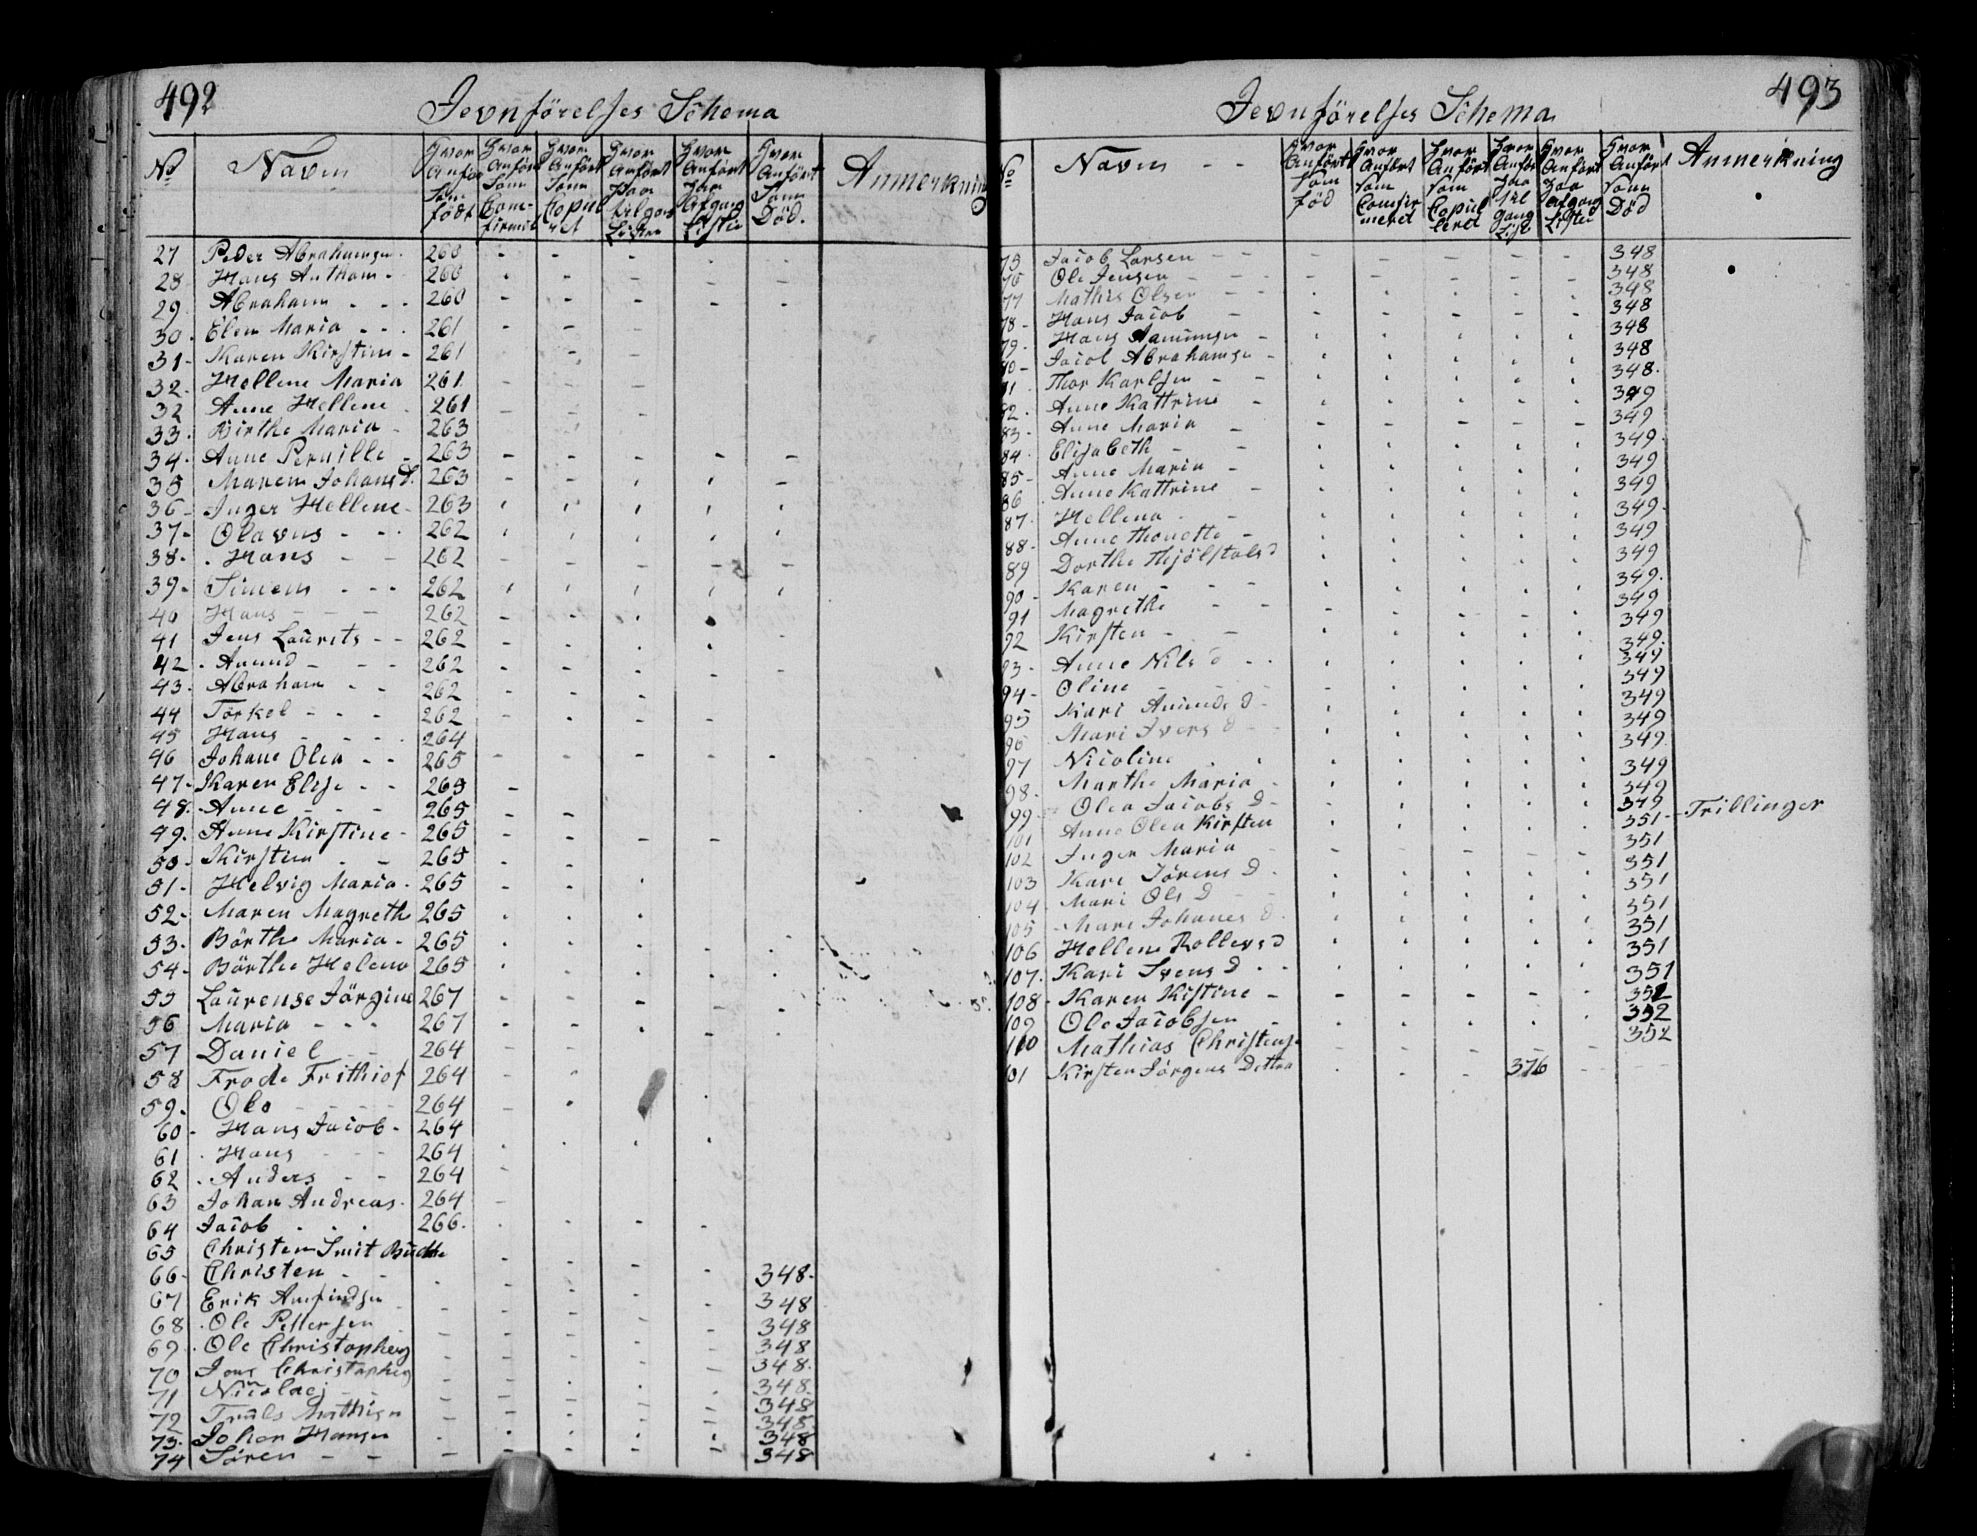 492
Jevnförelses Schema
No Navn Hvor Anført som födt Hvor Anført som Confirmeret Hvor Anført som Copuleret Hvor Anført paa tilgangs Listen Hvor Anført paa Afgang Listen Hvor Anført som Död. Anmerkning
27 Peder Abrahamsen 260
28 Hans Anthon 260
29 Abraham 260
30 Elen Maria 261
31 Karen Kirstine 261
32 Hellene Maria 261
32 Anne Hellene 261
33 Birthe Maria 263
34 Anne Pernille 263
35 Maren Johans D. 263
36 Inger Hellene 263
37 Olavus 262
38 Hans 262
39 Simen 262
40 Hans 262
41 Jens Laurits 262
42 Amund 262
43 Abraham 262
44 Torkel 262
45 Hans 264
46 Johane Olea 265
47 Karen Elise 265
48 Anne 265
49 Anne Kirstine 265
50 Kirsten 265
51 Helvig Maria 265
52 Maren Magrethe 265
53 Börthe Maria 265
54 Börthe Helene 265
55 Laurense Jörgine 267
56 Maria 267
57 Daniel 264
58 Frode Frithiof 264
59 Ole 264
60 Hans Jacob 264
61 Hans 264
62 Anders 264
63 Johan Andreas 264
64 Jacob 266
65 Christen Smit
66 Christen 348
67 Erik 348
68 Ole Pettersen 348
69 Ole Christophers 348
70 Jens Christophers 348
71 Nicolaej 348
72 Truls Mathisn 348
73 Johan Hansen 348
74 Sören 348
493
Jevnförelses Schema
No Navn Hvor Anført som föd Hvor Anført som Confirmeret Hvor Anført som Copuleret Hvor Anfør paa til gang List Hvor Anført paa Afgang Listen Hvor Anført som Död Anmerkning
75 Jacob Larsen 348
76 Ole Jensen 348
77 Mathis Olsen 348
78 Hans Jacob 348
79 Hans 348
80 Jacob Abrahamsen 348
81 Thor Karlsen 348
82 Anne Kattrine 349
83 Anne Maria 349
84 Elisabeth 349
85 Anne Maria 349
86 Anne Kattrine 349
87 Hellena 349
88 Anne Thonette 349
89 Dorthe 349
90 Karen 349
91 Magrethe 349
92 Kirsten 349
93 Anne Nils d 349
94 Oline 349
95 Kari Amunds d 349
96 Mari Ivers d 349
97 Nicoline 349
98 Marthe Maria 349
99 Olea Jacobs D 349
101 Anne Olea Kirsten 351 Trillinger
102 Inger Maria 351
103 Kari Jörens D 351
104 Mari Ols D 351
105 Mari Johanes d 351
106 Hellene Rollevs d 351
107 Kari Svens D 351
108 Karen Kistine 352
109 Ole Jacobsen 352
110 Mathias Christens 352
101 Kirsten Jörgens Dettra 376